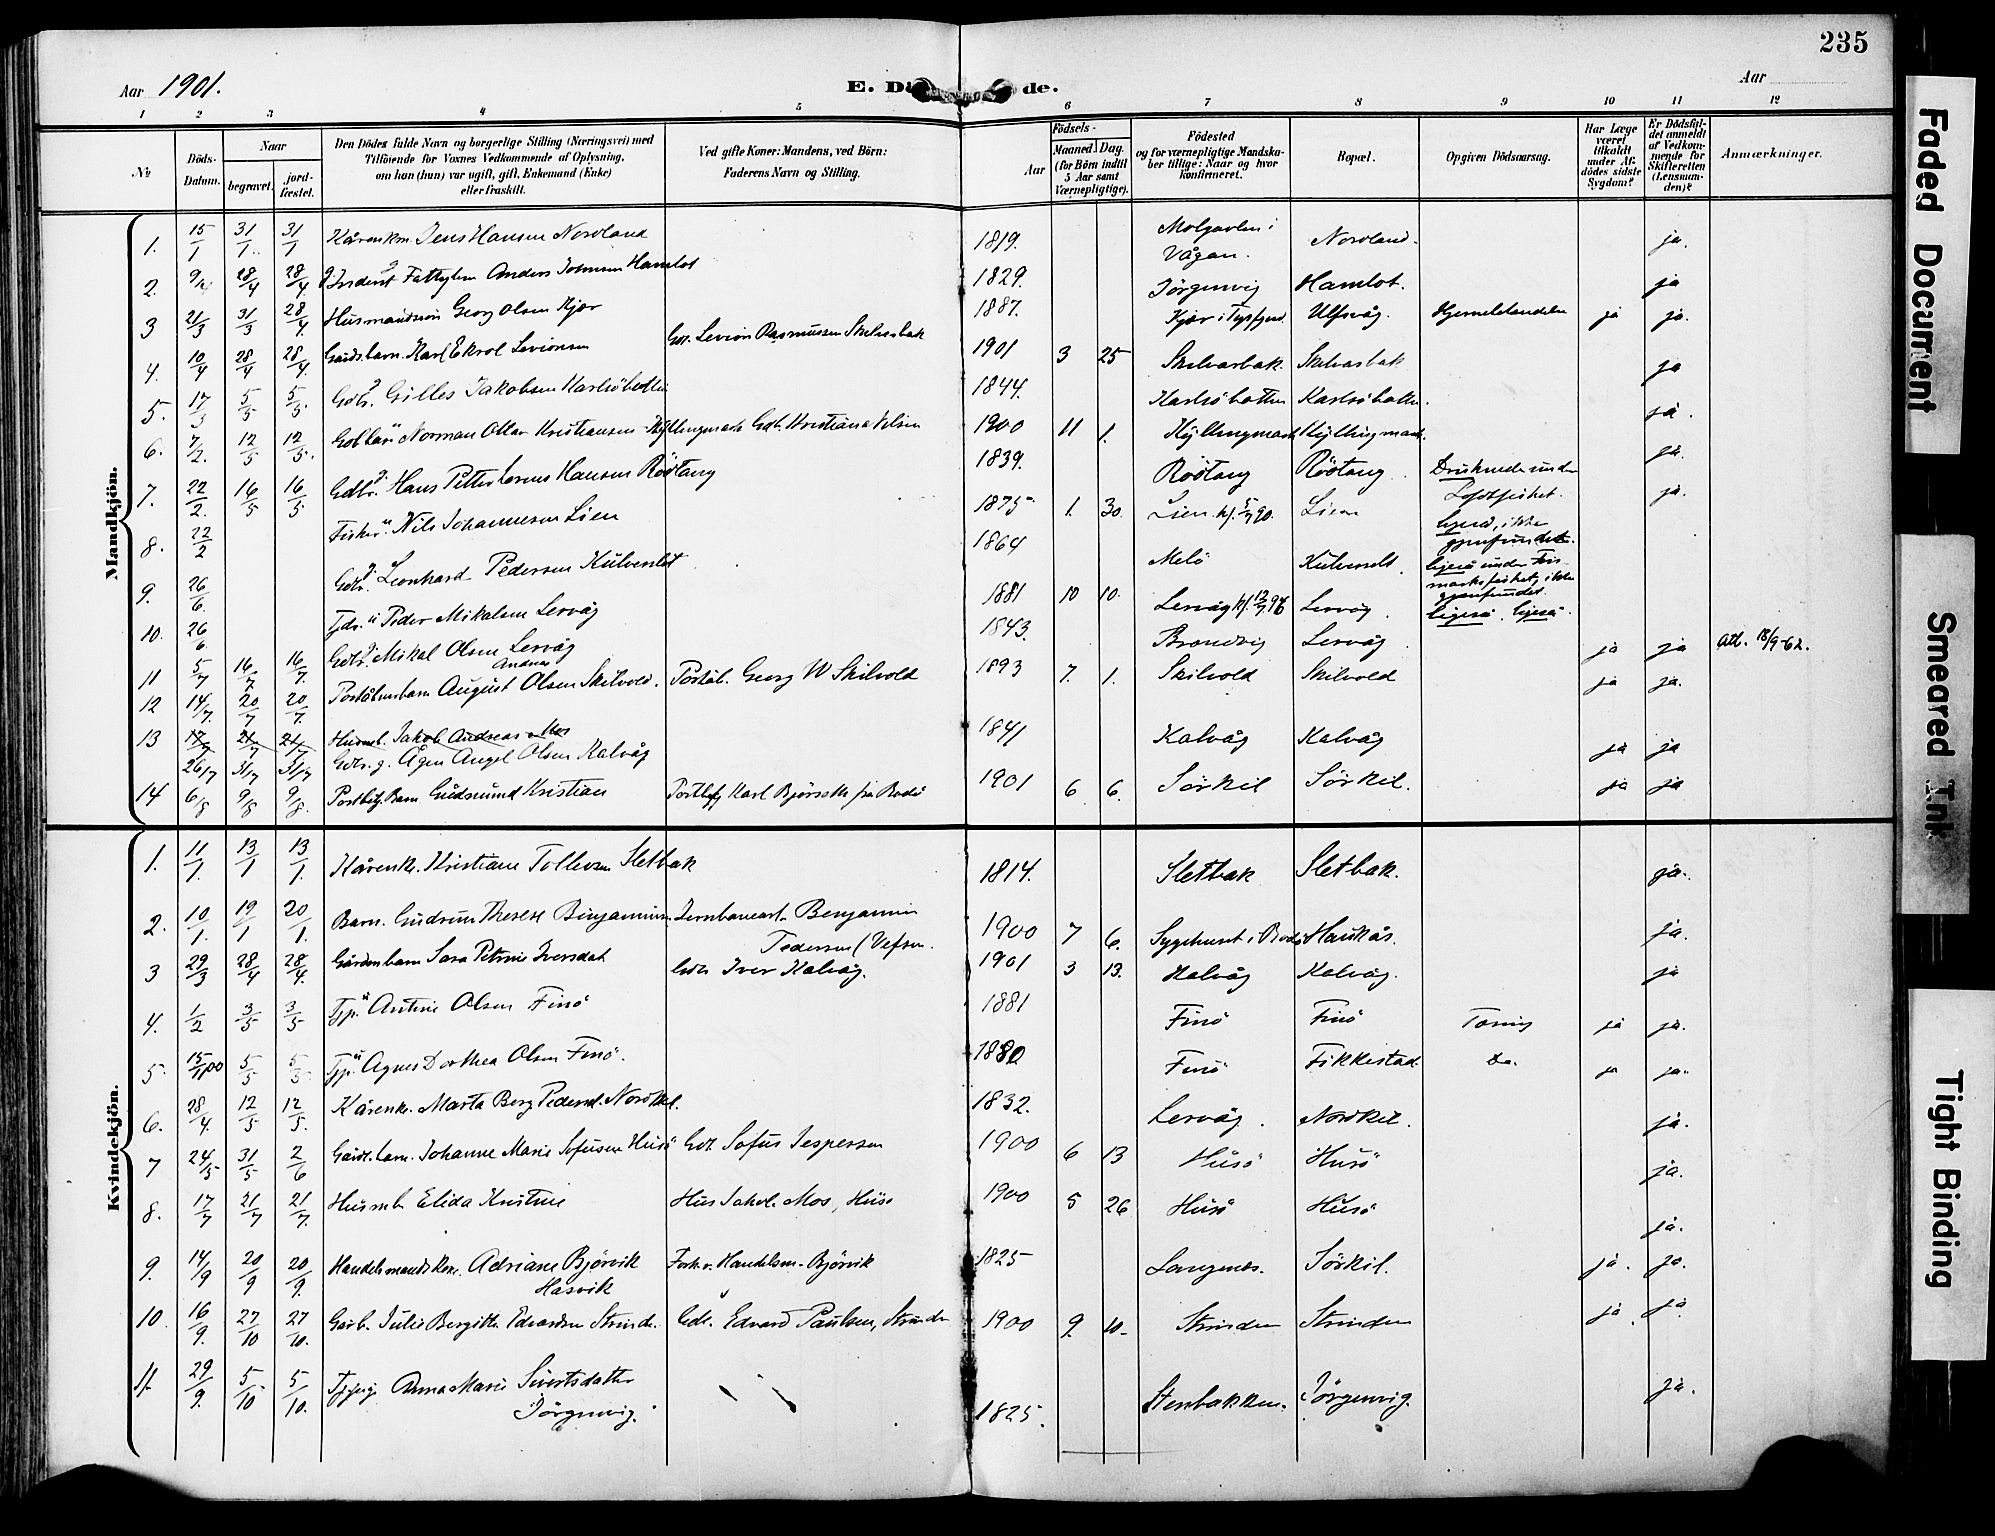 235
Aar 1901.
E. D de.
Aar
1 2 3 4 5 6 7 8 9 10 11 12
No
Döds-Datum.
Naar
begravet.
jord-fæstet.
Den Dödes fulde Navn og borgerlige Stilling (Næringsvei) med Tilföiende for Voxnes Vedkommende af Oplysning, om han (hun) var ugift, gift, Enkemand (Enke) eller fraskilt.
Ved gifte Koner: Mandens, ved Börn: Faderens Navn og Stilling.
Födsels-
Aar
Maaned. Dag.
(for Börn indtil 5 Aar samt Værnepligtige).
Födested og for værnepligtige Mandskaber tillige: Naar og hvor konfirmeret.
Bopæl.
Opgiven Dödsaarsag.
Har Læge været tilkaldt under Afdödes sidste Sygdom?
Er Dödsfaldet anmeldt af Vedkommende for Skifteretten (Lensmanden)?
Anmærkninger.
Mandkjön.
1. 15/1 31/1 31/1 Kårenkm. Jens Hansen Nordland 1819. i Vågan. Nordland. ja.
2. 28/4 28/4 Anders Johnsen Hamlot 1829. Jörgenvig Hamlot. ja
3 21/3 31/3 28/4 Husmandssön Georg Olsen Kjær 1887. Kjær i Tysfjord. Ulfsvåg. ja ja.
4. 10/4 28/4 28/4. Gårdb.barn. Karl Ekrol Levionsen Gdb. Levion Rasmussen Skilvasbak 1901 3 25 Skilvasbak Skilvasbak ja
5. 17/3 5/5 5/5. Gdbr. g Gilles Jakobsen Karlsöbotten 1844. Karlsöbotten Karlsöbotten. ja.
6. 7/2. 12/5 12/5. Norman Ottar Kristiansen Kyllingmark Gdb. Kristian Nilsen 1900 11 1. Kyllingmark Kyllingmark. ja.
7. 22/2. 16/5 16/5 Gdbr. g. Hans Petter Lorens Hansen Rödtang 1839. Rödtang Rödtang Druknede under Lofotfisket. ja.
8. 22/2 Fisker u Nils Johannesen Lien 1875 1. 30. Lien kf. 5/7 90. Lien ligeså, ikke gjenfundet.
9. 26/6. Gdbr. g. Leonhard Pedersen Külvenlet 1864 Melö ligeså under Finmarksfisket, ikke gjenfundet
10. 26/6 Tjdr. u Peder Mikalsen Lervåg 1881 10 10. Lervåg kf. Lervåg. ligeså. ligeså.
11 5/7 16/7 16/7. Gdbr. g. Mikal Olsen Lervåg 1843. Lervåg ja ja atl. 18/9-62.
12 14/7. 20/7 20/7. August Andreas Olsen Skilvold. Georg W Skilvold 1893 7. 1. Skilvold Skilvold ja ja.
13 17/7 21/7 21/7 Husmb. Jakob Andreas Mos
26/7 31/7 31/7 Gdbr. g. Ågen Angel Olsen Kalvåg 1841 Kalvåg Kalvåg ja ja
14 6/8 9/8 9/8. Barn Gudmund Kristian Karl Bjørseth fra Bodö 1901 6 6. Sörkil Sörkil. ja ja
Kvindekjön.
1. 11/1. 13/1 13/1. Kårenk. Kristiane Tollevsen Sletbak 1814. Sletbak Sletbak. ja.
2. 10/1. 19/1 20/1. Barn. Gudrun Therese Benjaminsen Jernbanearb. Benjamin Pedersen (Vefsn. 1900 7 6. Sygehuset i Bodö Haukås. ja.
3 29/3 28/4 28/4. Gårdm.barn Sara Petrine Iversdat Gdb Iver Kalvåg. 1901 3 13. Kalvåg Kalvåg. ja
4. 1/2 3/5 3/5 Tjp. u Antine Olsen Finö 1881 Finö Finö Tæring ja ja.
5. 15/1 00 5/5 5/5. Tjp. u Agnes Dorthea Olsen Finö. 1880 Finö Fikkestad. Do. ja ja.
6. 28/4. 12/5 12/5. Kårenk. Marta Berg Pedersd. Nordkil. 1832. Lervåg. Nordkil. ja.
7 24/5 31/5 2/6 Gårdb.barn. Johanne Marie Sofusen Husö Gdb. Sofus Jespersen 1900 6 13 Husö Husö ja.
8. 17/7 21/7 21/7. Husmb Elida Kristine Hus Jakob Mos, Husö 1900 5 26 Husö Husö ja.
9. 14/9 20/9 20/9. Handelsmandskone. Adriane Bjørvik Hasvik Forhv. Handelsm. Bjørvik 1825 Langenes. Sörkil. ja. ja.
10. 16/9. 27/10 27/10. Gårb. Julie Bergitte Edvardsen Strind. Gdb. Edvard Paulsen, Strinden 1900 9. 10. Strinden Strinden ja. ja
11. 29/9. 5/10 5/10. Anna Marie Sivertsdatter Jörgenvig. 1825. Stenbakken. Jörgenvig. ja.
Faded Document
Smeared Ink
Tight Binding